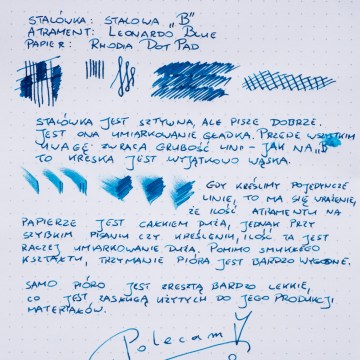 STALÓWKA: STALOWA „B"
ATRAMENT: LEONARDO BLUE
PAPIER: RHODIA DOT PAD
STALÓWKA JEST SZTYWNA, ALE PISZE DOBRZE.
JEST ONA UMIARKOWANIE GŁADKA. PRZEDE WSZYSTKIM
UWAGĘ ZWRACA GRUBOŚĆ LINII – JAK NA „B"
TO KRESKA JEST WYJĄTKOWO WĄSKA.
GDY KREŚLIMY POJEDYNCZE
LINIE, TO MA SIĘ WRAŻENIE,
ŻE ILOŚĆ ATRAMENTU NA
PAPIERZE JEST CAŁKIEM DUŻA, JEDNAK PRZY
SZYBKIM PISANIU CZY KREŚLENIU, ILOŚĆ TA JEST
RACZEJ UMIARKOWANIE DUŻA. POMIMO SMUKŁEGO
KSZTAŁTU, TRZYMANIE PIÓRA JEST BARDZO WYGODNE.
SAMO PIÓRO JEST ZRESZTĄ BARDZO LEKKIE,
CO JEST ZASŁUGĄ UŻYTYCH DO JEGO PRODUKCJI
MATERIAŁÓW.
Polecam!